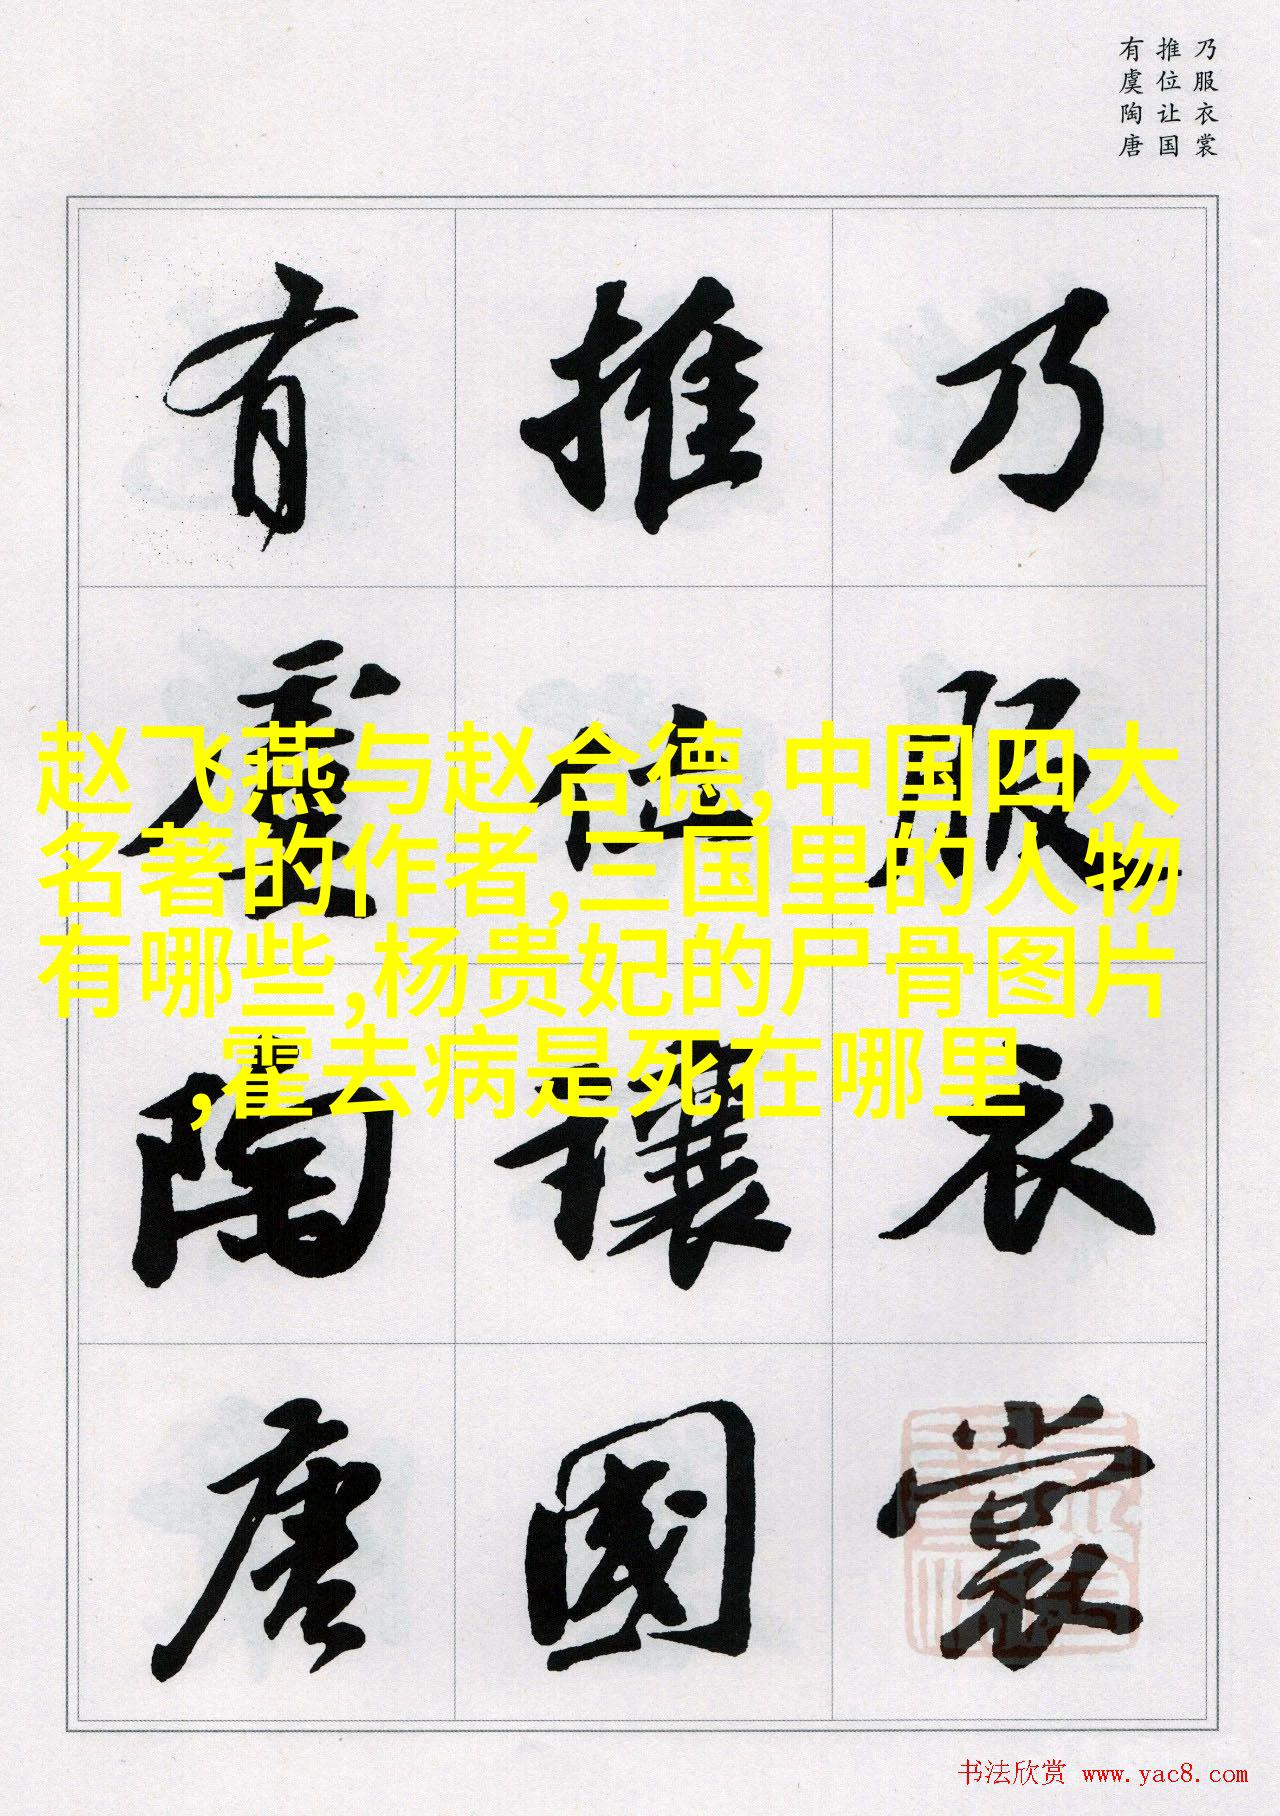 乃服衣裳
推位让国
有虞陶唐
乃服衣裳
推位讓國
有虞陶唐
赵飞燕与赵合德,中国四大
名著的作者,三国里的人物
有哪些,杨贵妃的尸骨图片
,霍去病是死在哪里
书法欣赏 www.yac8.com